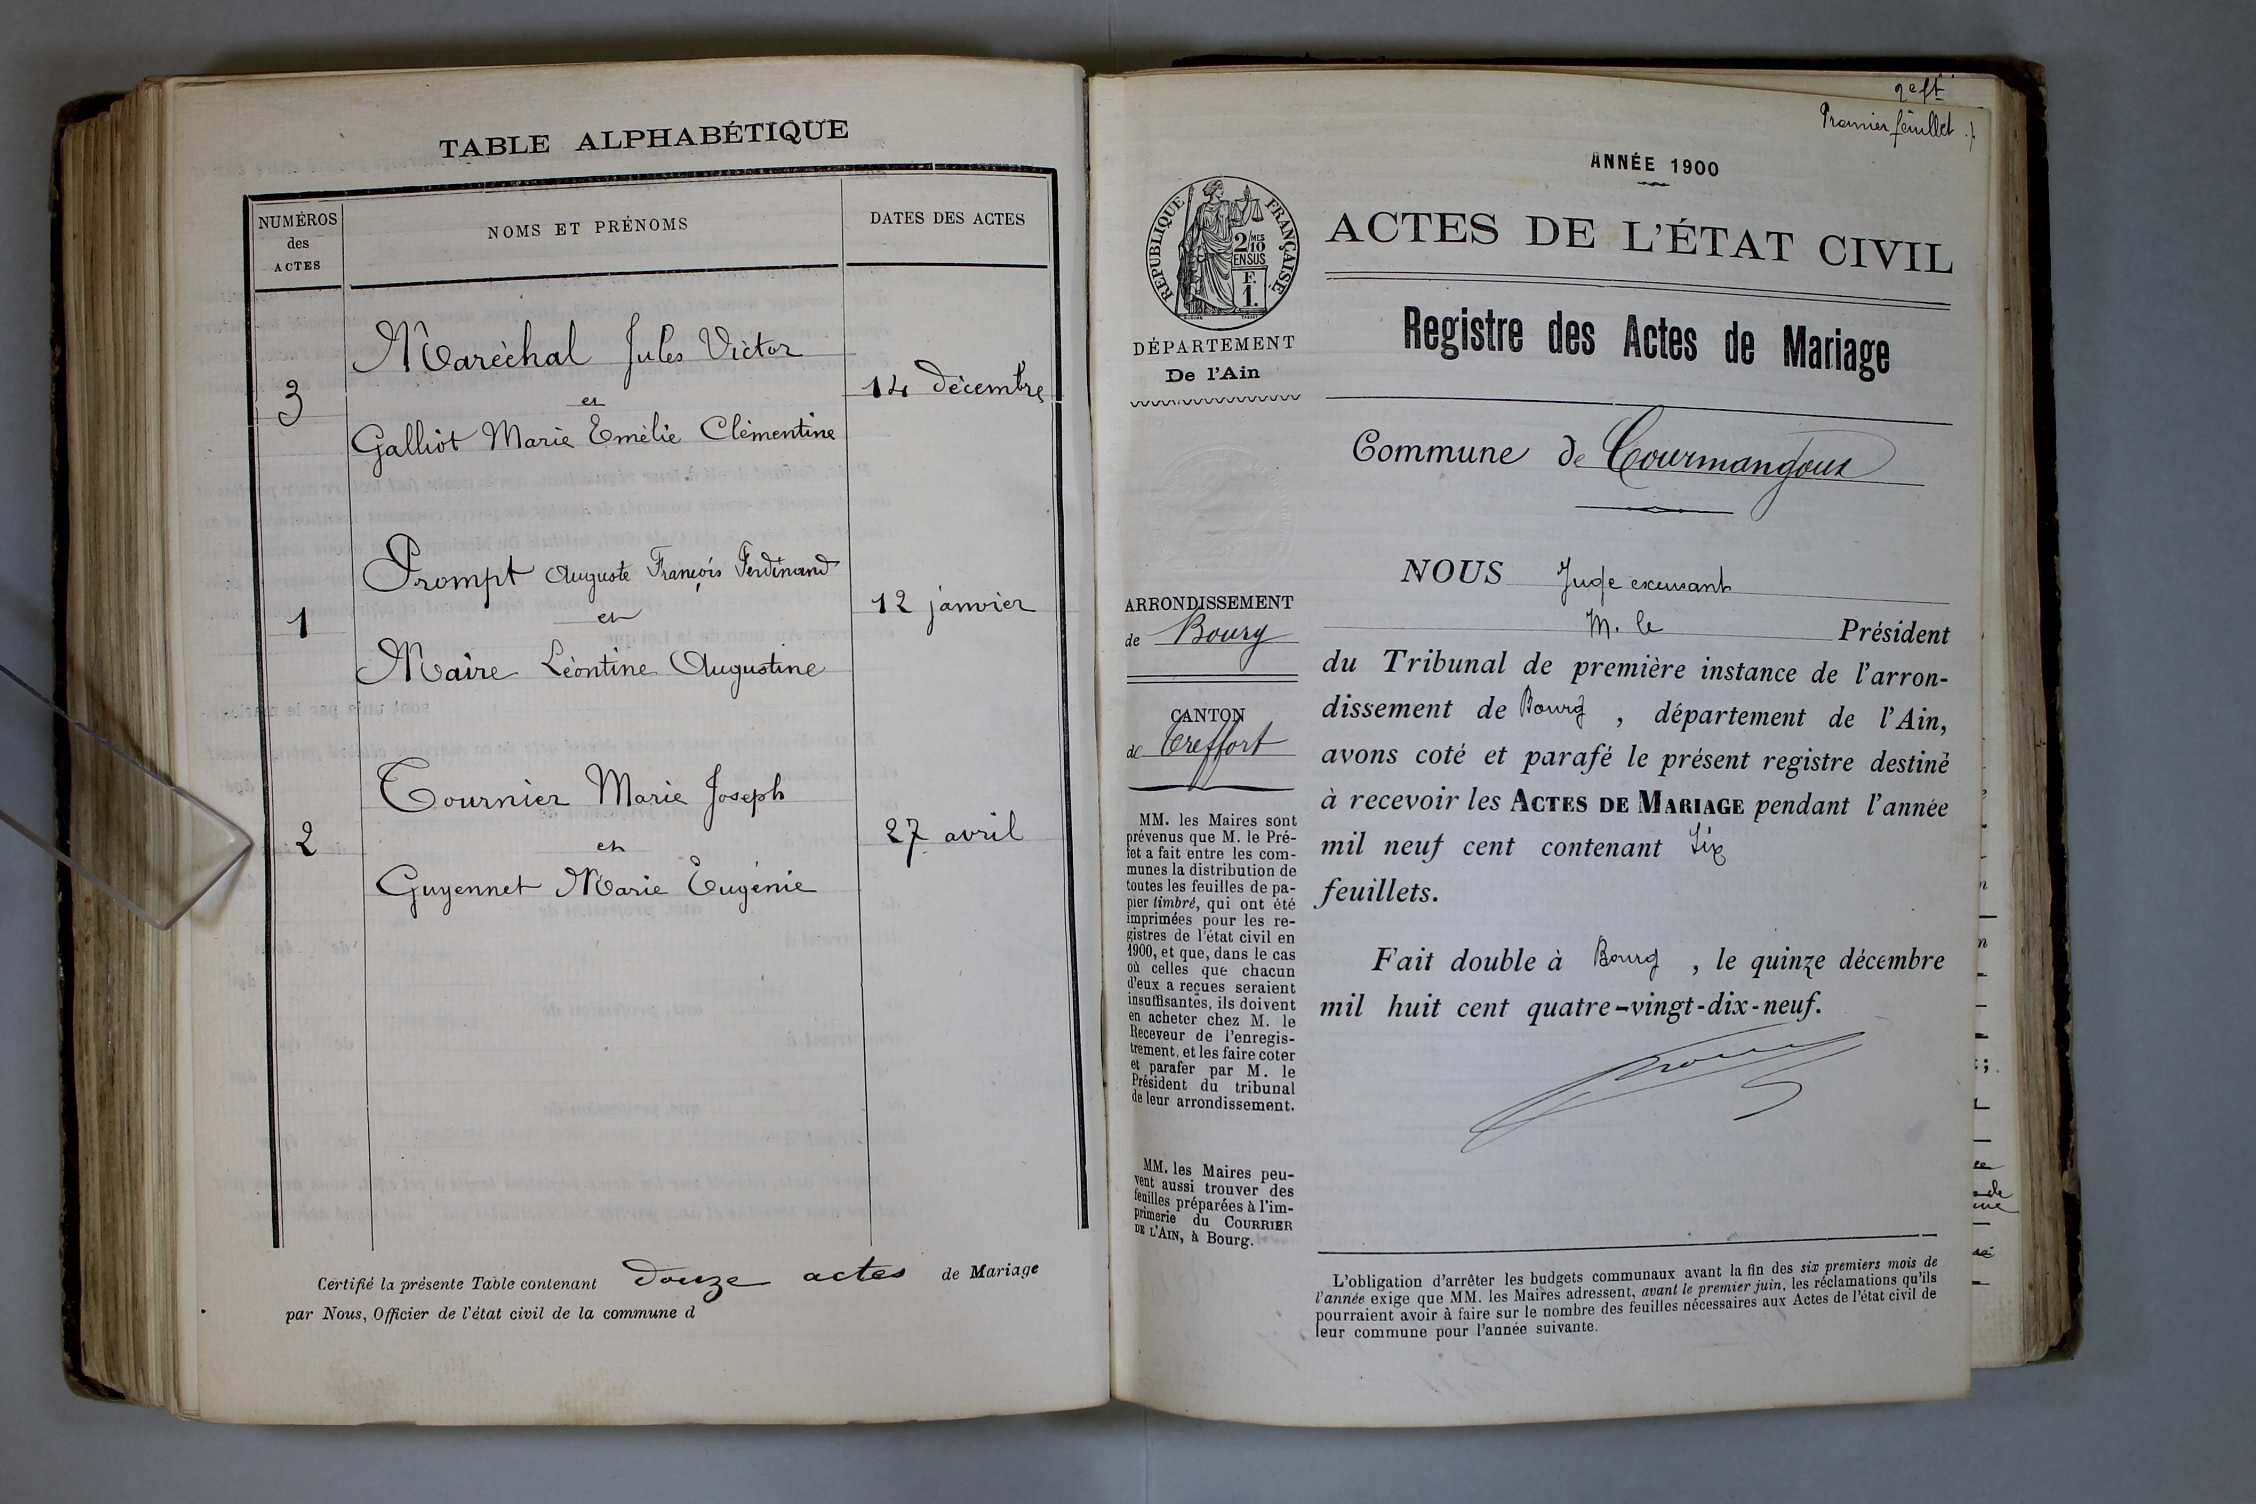 TABLE ALPHABÉTIQUE
NUMÉROS
des
ACTES
NOMS ET PRÉNOMS
DATES DES ACTES
Maréchal Jules Victor
3
et
14 décembre
Galliot Marie Emélie Clémentine
Prompt Auguste François Ferdinand
1
et
12 janvier
Maire Léontine Augustine
Tournier Marie Joseph
2
et
27 avril
Guyennet Marie Eugénie
Certifié la présente Table contenant douze actes de Mariage
par Nous, Officier de l'état civil de la commune d
Premier feuillet
ANNÉE 1900
RÉPUBLIQUE FRANÇAISE
2/MES
10
EN SUS
F.
1.
DÉPARTEMENT
De l'Ain
ARRONDISSEMENT
de Bourg
CANTON
de Treffort
MM. les Maires sont
prévenus que M. le Pré-
fet a fait entre les com-
munes la distribution de
toutes les feuilles de pa-
pier timbré, qui ont été
imprimées pour les re-
gistres de l'état civil en
1900, et que, dans le cas
où celles que chacun
d'eux a reçues seraient
insuffisantes, ils doivent
en acheter chez M. le
Receveur de l'enregis-
trement, et les faire coter
et parafer par M. le
Président du tribunal
de leur arrondissement.
MM. les Maires peu-
vent aussi trouver des
feuilles préparées à l'im-
primerie du COURRIER
DE L'AIN, à Bourg.
ACTES DE L'ÉTAT CIVIL
Registre des Actes de Mariage
Commune de Courmangoux
NOUS Juge excusant
M. le Président
du Tribunal de première instance de l'arron-
dissement de Bourg, département de l'Ain,
avons coté et parafé le présent registre destiné
à recevoir les ACTES DE MARIAGE pendant l'année
mil neuf cent contenant Six
feuillets.
Fait double à Bourg, le quinze décembre
mil huit cent quatre-vingt-dix-neuf.
L'obligation d'arrêter les budgets communaux avant la fin des six premiers mois de
l'année exige que MM. les Maires adressent, avant le premier juin, les réclamations qu'ils
pourraient avoir à faire sur le nombre des feuilles nécessaires aux Actes de l'état civil de
leur commune pour l'année suivante.